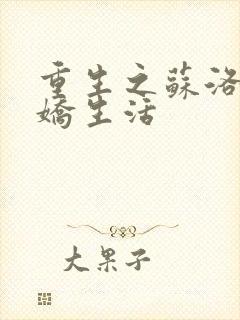 重生之蘇洛
嬌生活
大果子